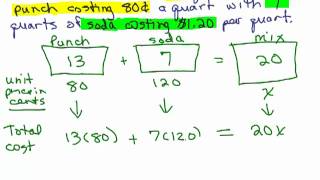 punch costing 80¢ a quart with 7
quarts of soda costing $1.20 per quart.
punch soda mix
13 + 7 = 20
unit price in cents 80 120 x
Total cost 13(80) + 7(120) = 20x